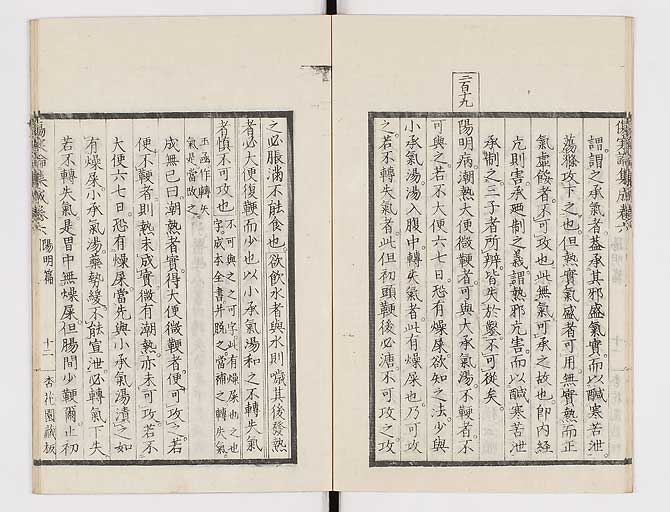 傷寒論集成卷六
謂謂之承氣者蓋承其邪盛氣實而以鹹寒苦泄
蕩滌攻下之也但熱實氣盛者可用無實熱而正
氣虛餒者不可攻也此無氣可承之故也即内經
亢則害承廼制之義謂熱邪亢害而以鹹寒苦泄
承制之三子者所辨皆失於鑿不可從矣
二百十九
陽明病潮熱大便微鞕者可與大承氣湯不鞕者不
可與之若不大便六七日恐有燥屎欲知之法少與
小承氣湯湯入腹中轉失氣者此有燥屎也乃可攻
之若不轉失氣者此但初頭鞕後必溏不可攻之攻
之必脹滿不能食也欲飲水者與水則噦其後發熱
者必大便復鞕而少也以小承氣湯和之不轉失氣
者慎不可攻也
不可與之之可字此有燥屎也之也
字成本全書并脱之當補之轉失氣
玉函作轉矢
氣是當改之
成無已曰潮熱者實得大便微鞕者便可攻之若
便不鞕者則熱未成實微有潮熱亦未可攻若不
大便六七日恐有燥屎當先與小承氣湯漬之如
有燥屎小承氣湯藥勢緩不能宣泄必轉氣下失
若不轉失氣是胃中無燥屎但腸間少鞕爾止初
傷寒論集成卷六
陽明篇
十二
杏花園藏板